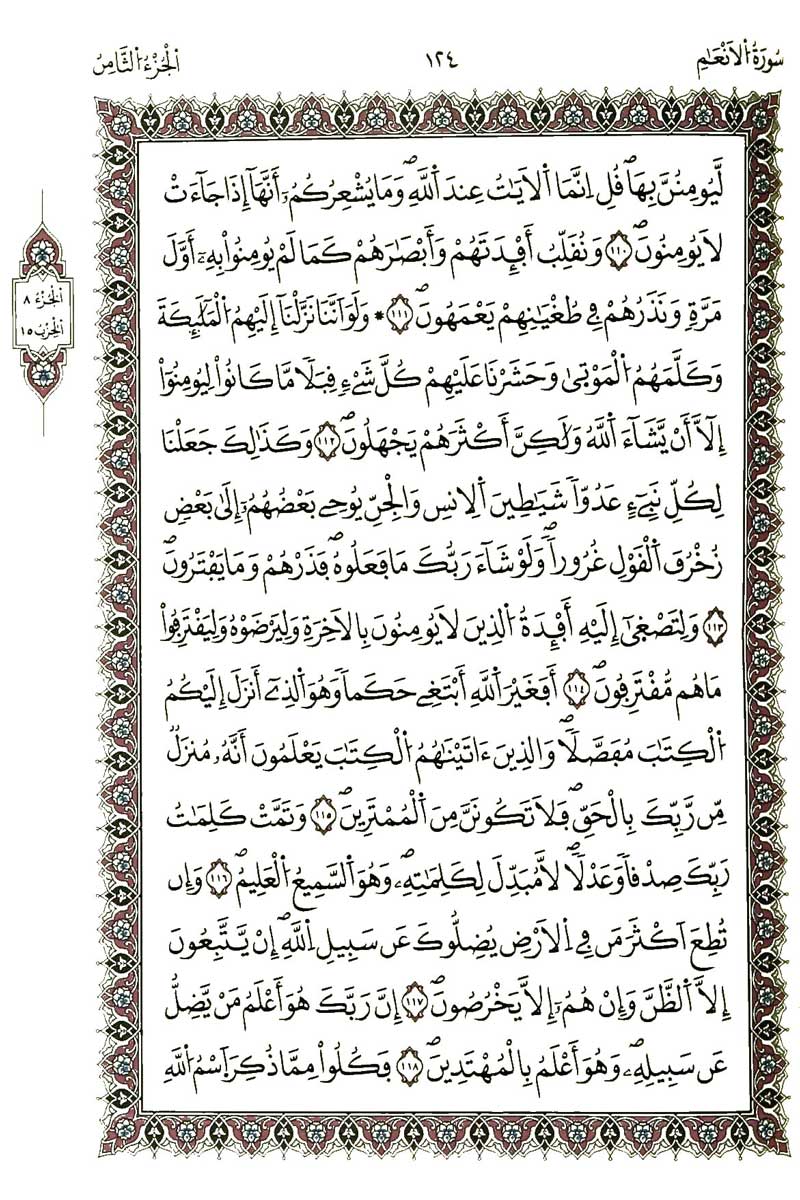 سُورَةُ الأَنْعَامِ
١٢٤
الْجُزْءُ الثَّامِنُ
لَّيُومِنُنَّ بِهَا قُلِ اِنَّمَا اَ۬لَايَٰتُ عِندَ اَ۬للَّهِ وَمَا يُشْعِرُكُمُۥٓ أَنَّهَآ إِذَا جَآءَتْ
لَا يُومِنُونَ ١١٠ وَنُقَلِّبُ أَفْـِٕدَتَهُمْ وَأَبْصَٰرَهُمْ كَمَا لَمْ يُومِنُواْ بِهِۦٓ أَوَّلَ
مَرَّةٍ وَنَذَرُهُمْ فِي طُغْيَٰنِهِمْ يَعْمَهُونَ ١١١ * وَلَوَ اَنَّنَا نَزَّلْنَآ إِلَيْهِمُ اُ۬لْمَلَٰٓئِكَةَ
وَكَلَّمَهُمُ اُ۬لْمَوْتۭيٰ وَحَشَرْنَا عَلَيْهِمْ كُلَّ شَےْءٖ قِبَلاٗ مَّا كَانُواْ لِيُومِنُوٓاْ
إِلَّآ أَنْ يَّشَآءَ اَ۬للَّهُ وَلَٰكِنَّ أَكْثَرَهُمْ يَجْهَلُونَ ١١٢ وَكَذَٰلِكَ جَعَلْنَا
لِكُلِّ نَبِےٓءٍ عَدُوّاٗ شَيَٰطِينَ اَ۬لِانسِ وَالْجِنِّ يُوحِے بَعْضُهُمُۥٓ إِلَىٰ بَعْضٖ
زُخْرُفَ اَ۬لْقَوْلِ غُرُوراٗ وَلَوْ شَآءَ رَبُّكَ مَا فَعَلُوهُ فَذَرْهُمْ وَمَا يَفْتَرُونَ
١١٣ وَلِتَصْغۭيٰٓ إِلَيْهِ أَفْـِٕدَةُ اُ۬لذِينَ لَا يُومِنُونَ بِالَاخِرَةِ وَلِيَرْضَوْهُ وَلِيَقْتَرِفُواْ
مَا هُم مُّقْتَرِفُونَ ١١٤ أَفَغَيْرَ اَ۬للَّهِ أَبْتَغِے حَكَماٗ وَهُوَ اَ۬لذِےٓ أَنزَلَ إِلَيْكُمُ
اُ۬لْكِتَٰبَ مُفَصَّلاٗ وَالذِينَ ءَاتَيْنَٰهُمُ اُ۬لْكِتَٰبَ يَعْلَمُونَ أَنَّهُۥ مُنزَلٞ
مِّن رَّبِّكَ بِالْحَقِّ فَلَا تَكُونَنَّ مِنَ اَ۬لْمُمْتَرِينَ ١١٥ وَتَمَّتْ كَلِمَٰتُ
رَبِّكَ صِدْقاٗ وَعَدْلاٗ لَّا مُبَدِّلَ لِكَلِمَٰتِهِۦ وَهُوَ اَ۬لسَّمِيعُ اُ۬لْعَلِيمُ ١١٦ وَإِن
تُطِعَ اَكْثَرَ مَن فِي اِ۬لَارْضِ يُضِلُّوكَ عَن سَبِيلِ اِ۬للَّهِ إِنْ يَّتَّبِعُونَ
إِلَّا اَ۬لظَّنَّ وَإِنْ هُمُۥٓ إِلَّا يَخْرُصُونَ ١١٧ إِنَّ رَبَّكَ هُوَ أَعْلَمُ مَنْ يَّضِلُّ
عَن سَبِيلِهِۦ وَهُوَ أَعْلَمُ بِالْمُهْتَدِينَ ١١٨ فَكُلُواْ مِمَّا ذُكِرَ اَ۪سْمُ اُ۬للَّهِ
الجُزْءُ ٨
الحِزْبُ ١٥